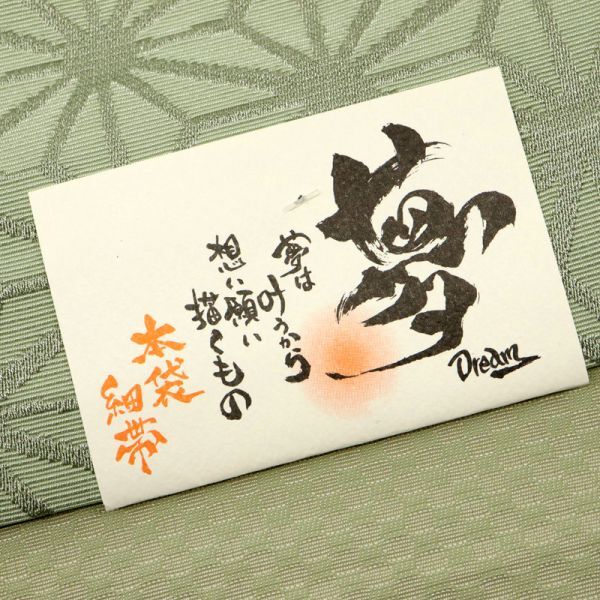 夢
Dream
夢は
叶うから
想い願い
描くもの
本袋
細帯